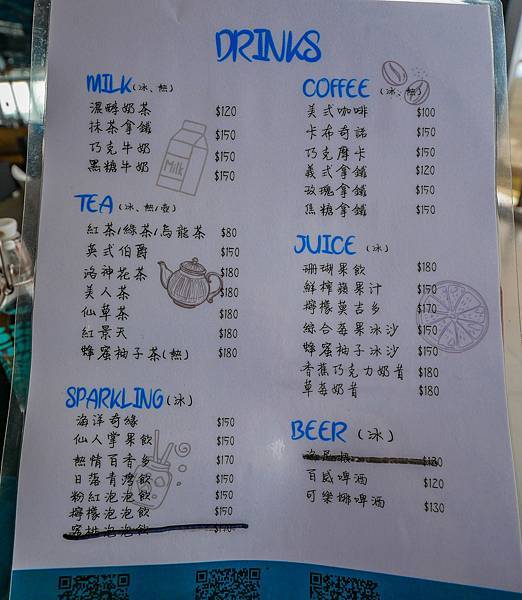 DRINKS
MILK (冰、熱)
濃醇奶茶 $120
抹茶拿鐵 $150
巧克牛奶 $150
黑糖牛奶 $150
Milk
TEA (冰、熱/壺)
紅茶/綠茶/烏龍茶 $80
英式伯爵 $150
洛神花茶 $180
美人茶 $180
仙草茶 $180
紅景天 $180
蜂蜜柚子茶(熱) $180
SPARKLING (冰)
海洋奇緣 $150
仙人掌果飲 $150
熱情百香鄉 $170
日落青灣飲 $150
粉紅泡泡飲 $150
檸檬泡泡飲 $150
蜜桃泡泡飲
COFFEE (冰、熱)
美式咖啡 $100
卡布奇諾 $150
巧克摩卡 $150
義式拿鐵 $120
玫瑰拿鐵 $150
焦糖拿鐵 $150
JUICE (冰)
珊瑚果飲 $180
鮮檸蘋果汁 $150
檸檬莫吉多 $170
綜合莓果冰沙 $150
蜂蜜柚子冰沙 $150
香蕉巧克力奶昔 $180
草莓奶昔 $180
BEER (冰)
百威啤酒 $120
可樂娜啤酒 $130